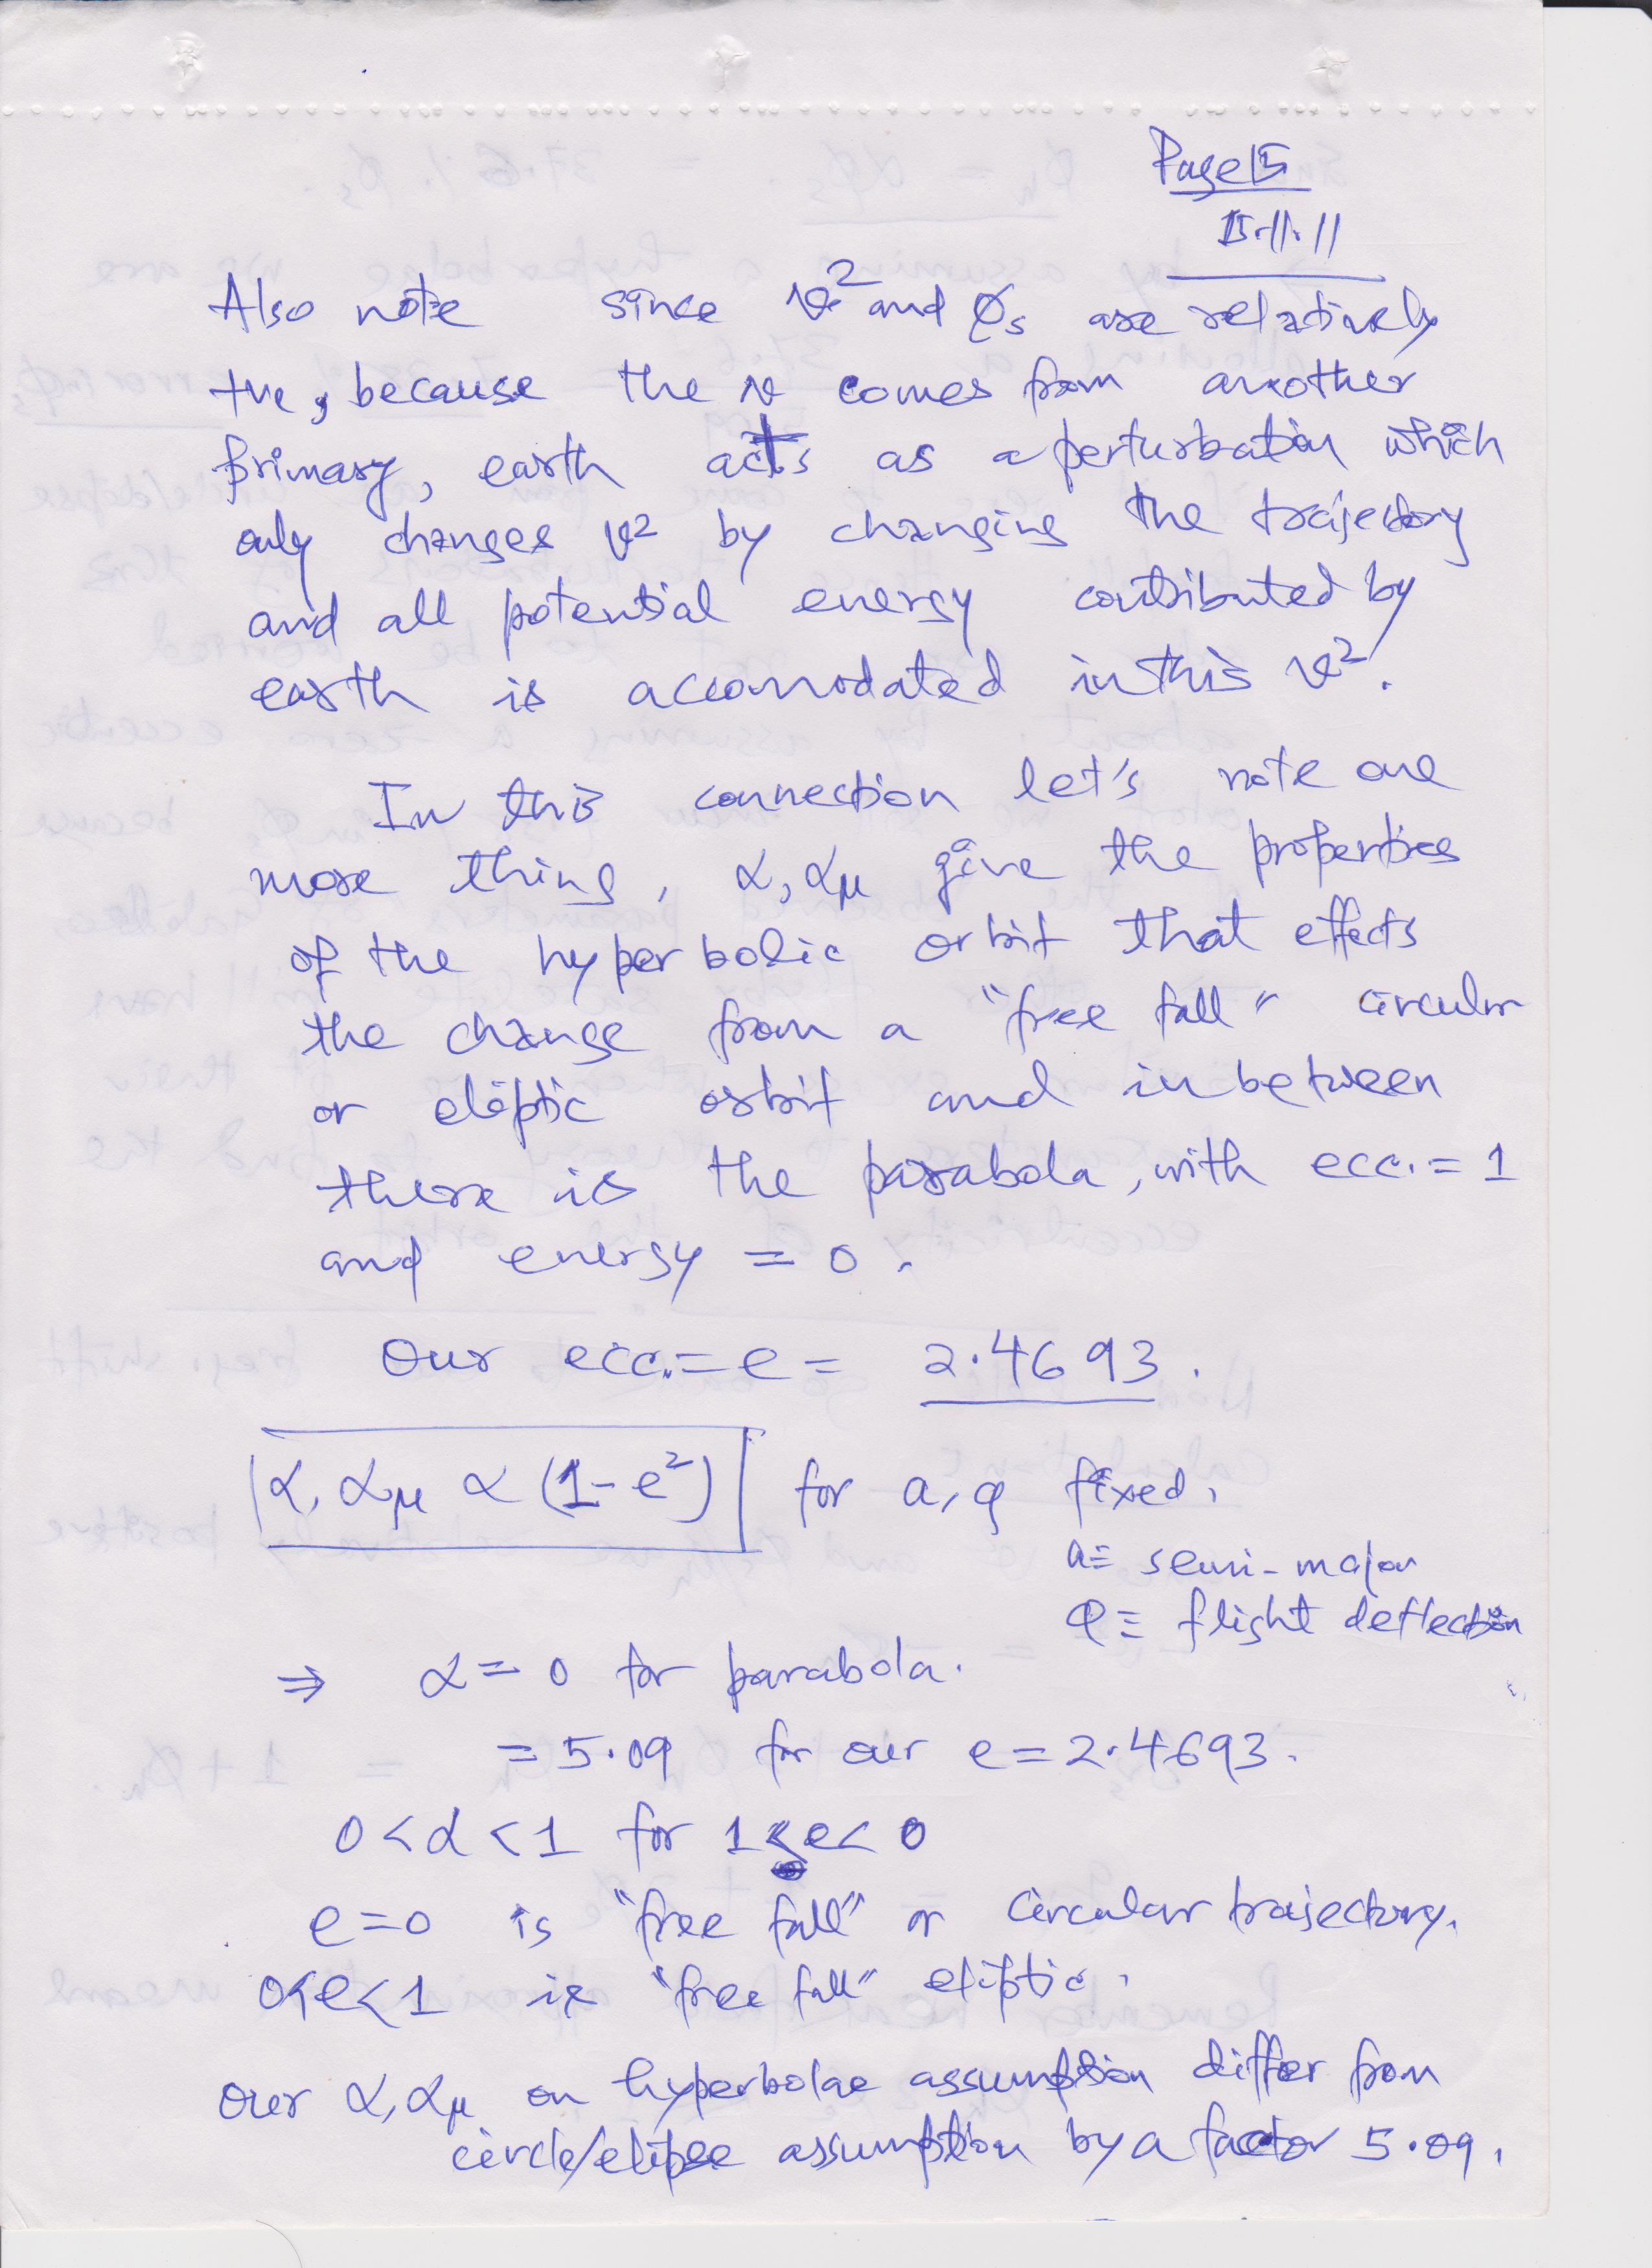 Page 15
15.11.11
Also note since v² and φs are relatively
+ve, because the v comes from another
primary, earth acts as a perturbation which
only changes v² by changing the trajectory
and all potential energy contributed by
earth is accomodated in this v².
In this connection let's note one
more thing, α, αμ give the properties
of the hyperbolic orbit that effects
the change from a "free fall" circular
or eliptic orbit and in between
there is the parabola, with ecc. = 1
and energy = 0.
Our ecc. = e = 2.4693.
α, αμ ∝ (1-e²) for a, φ fixed.
a ≡ semi-major
φ ≡ flight deflection
⇒ α = 0 for parabola.
= 5.09 for our e = 2.4693.
0 < α < 1 for 1 < e < 0
e = 0 is "free fall" or circular trajectory.
0<e<1 is "free fall" eliptic.
Our α, αμ on hyperbolae assumption differ from
circle/elipse assumption by a factor 5.09.